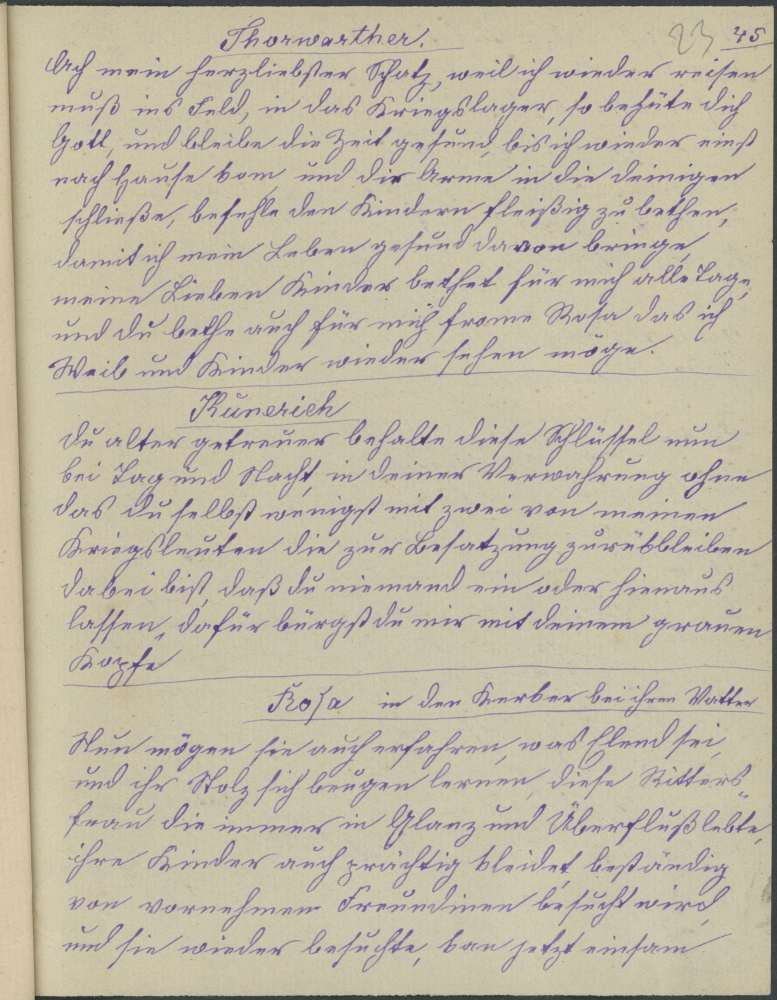 Thorwarther.
23 45
Ach mein herzliebster Schatz, weil ich wieder reisen
muß ins Feld, in das Kriegslager, so behüte dich
Gott, und bleibe die Zeit gesund, bis ich wieder einst
nach Hause kom, und die Arme in die deinigen
schließe, befehle den Kindern fleißig zu bethen,
damit ich mein Leben gesund davon bringe,
meine Lieben Kinder bethet für mich alle Tage,
und du bethe auch für mich frome Rosa das ich
Weib und Kinder wieder sehen möge.
Kunerich
Du alter getreuer behalte diese Schlüssel nun
bei Tag und Nacht, in deiner Verwahrung ohne
das du selbst wenigst mit zwei von meinen
Kriegsleuten die zur Besatzung zurükbleiben
dabei bist, daß du niemand ein oder hienaus
lassen, dafür bürgst du mir mit deinem grauen
Kopfe
Rosa in den Kerker bei ihren Vatter
Nun mögen sie auch erfahren, was Elend sei,
und ihr Stolz sich beugen lernen, diese Ritters-
frau die immer in Glanz und Überfluß lebte,
ihre Kinder auch prächtig kleidet, beständig
von vornehmen Freundinen besucht wird,
und sie wieder besuchte, kan jetzt einsam